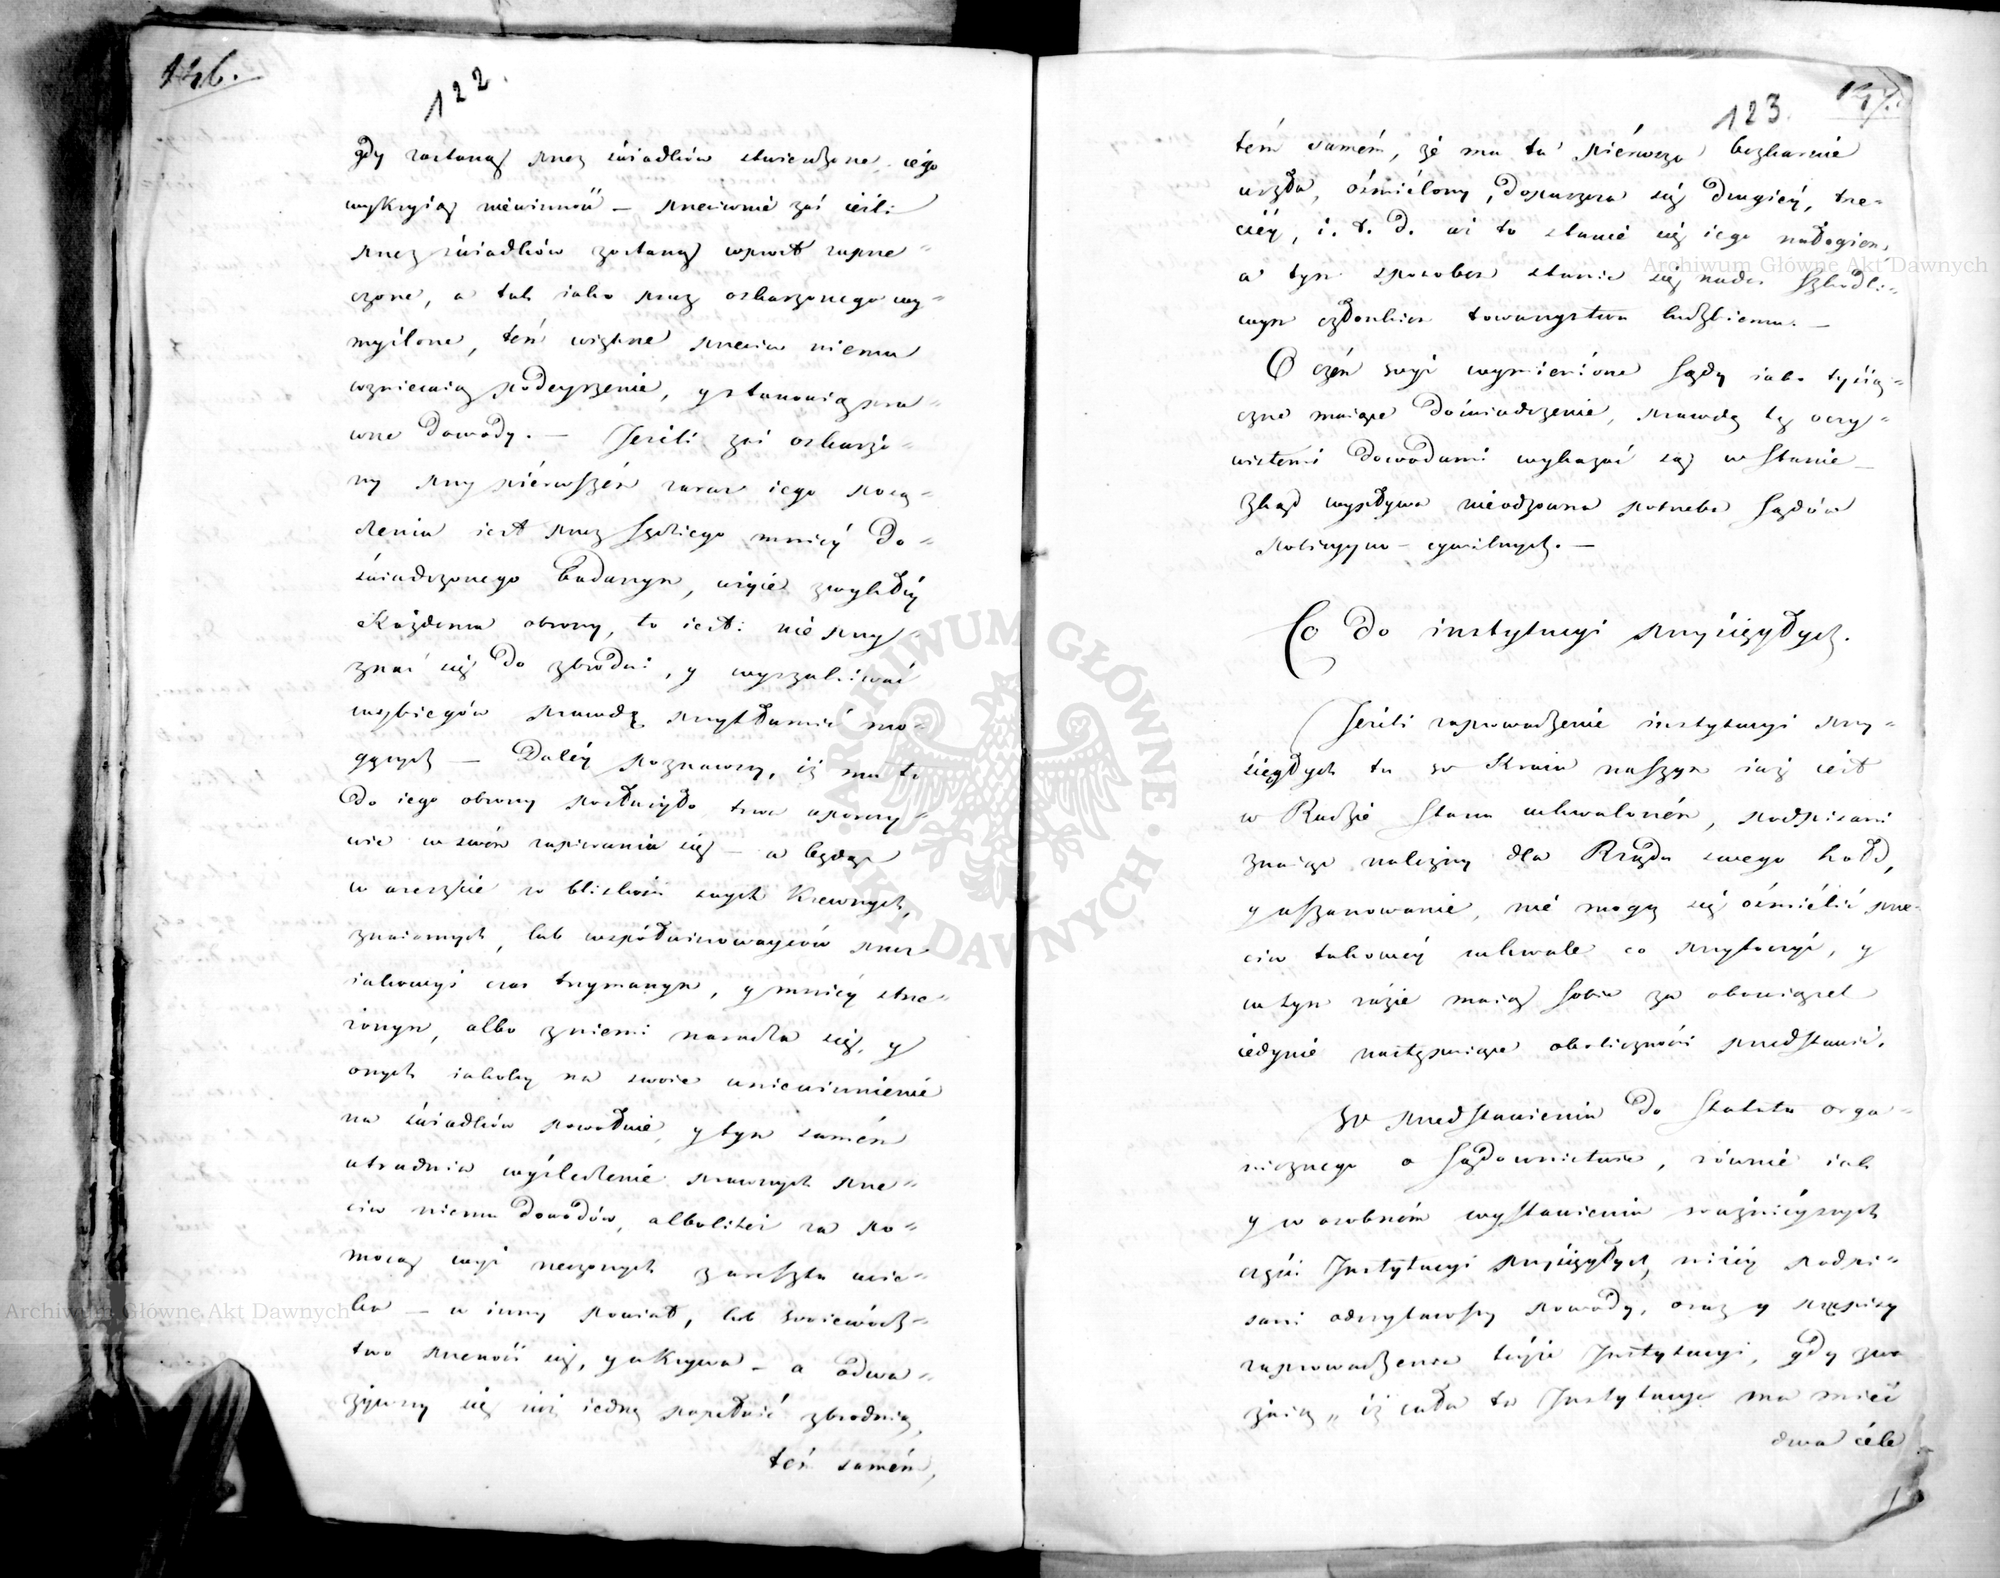 146.
122.
gdy zostaną przez świadków stwierdzone, iego
wykryią niewinność – przeciwnie zaś ieśli
przez świadków zostaną wprost zaprze=
czone, a tak iako przez oskarzonego wy=
myślone, tém większe przeciw niemu
wzniecaią podeyrzenie, y stanowią pra=
wne dowody. – Jeśli zaś oskarzo=
ny przy piérwszém zaraz iego
iest przez Sędziego mniéy do=
świadczonego badanym, użyie zwykłéy
Każdemu obrony, to iest: nie przy=
znać się do zbrodni, y wyszukiwać
wybiegów prawdę przytłumić mo=
gących – Daléy poznawszy, iż mu to
do iego obrony posłużyło trwa uporczy=
wie w swém zapieraniu się – a będąc
w areszcie w bliskości swych Krewnych,
znaiomych, lub współwinowayców przez
iakowyś czas trzymanym, y mniéy strze=
żonym, albo z niemi naradza się, y
onych iakoby na swoie uniewinnienie
na świadków powołuie, y tym samém
utrudnia wyśledzenie prawnych prze=
ciw niemu dowodów, albo liteż za po=
mocą wyż rzeczonych z aresztu ucie=
ka – w inny Powiat, lub Woiewódz=
two przenosi się, y ukrywa – a odwa=
żywszy się iuż iedną popełnić zbrodnią,
tém samém,
123.
147.
tém samém, że mu ta piérwsza bezkarnie
uszła, ośmiélony, dopuszcza się drugiéy, trze=
ciéy, i. t. d. aż to stanie się iego nałogiem
a tym sposobem stanie się nader szkodli=
wym członkiem towarzystwa ludzkiego. –
O czém wyż wymiénione Sądy iako tysią=
czne maiące doświadczenie, prawdę tę oczy=
wistemi dowodami wykazać są w Stanie
zkąd wypływa nieodzowna potrzeba Sądów
Policyyno – cywilnych. –
Co do instytucyi przysięgłych.
Jeśli zaprowadzenie instytucyi przy=
sięgłych tu w Kraiu naszym iuż iest
w Radzie Stanu uchwaloném, podpisani
znaiąc należny dla Rządu swego hołd,
y uszanowanie, nie mogą się ośmiélić prze=
ciw takowéy uchwale co przytoczyć, y
w tym razie maią sobie za obowiązek
iedynie następuiące okoliczności przedstawić.
W przedstawieniu do Statutu orga=
nicznego o Sądownictwie, równie iak
y w osobném wystawieniu ważnieyszych
części Instytucyi przysięgłych, niżéy podpi=
sani odczytawszy powody, oraz y przepisy
zaprowadzenia téyże Instytucyi, gdy zwa
żaią, iż cała ta Instytucya ma mieć
dwa céle